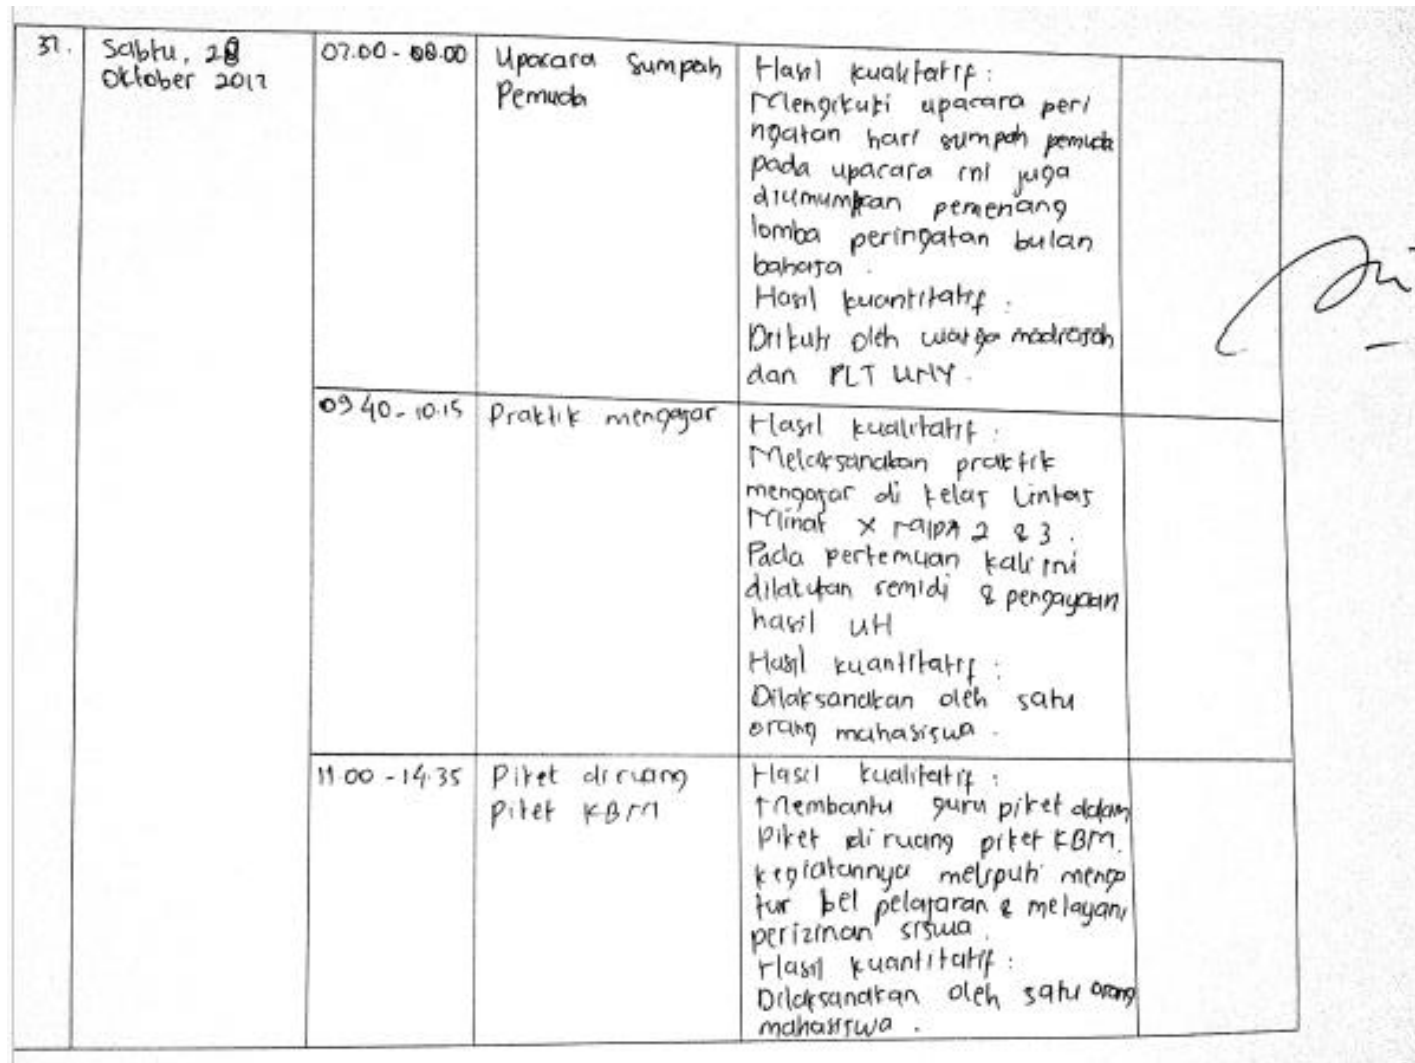 37.
Sabtu, 28
Oktober 2017
07.00 - 08.00
Upacara Sumpah
Pemuda
Hasil kualitatif :
Mengikuti upacara peri
ngatan hari sumpah pemuda
pada upacara ini juga
diumumkan pemenang
lomba peringatan bulan
bahasa .
Hasil kuantitatif :
Diikuti oleh warga madrasah
dan PLT UNY .
09.40 - 10.15
Praktik mengajar
Hasil kualitatif :
Melaksanakan praktik
mengajar di kelas Lintas
Minat X MIPA 2 & 3 .
Pada pertemuan kali ini
dilakukan remidi & pengayaan
hasil UH
Hasil kuantitatif :
Dilaksanakan oleh satu
orang mahasiswa .
11.00 - 14.35
Piket di ruang
Piket KBM
Hasil kualitatif :
Membantu guru piket dalam
Piket di ruang piket KBM.
kegiatannya meliputi menga
tur bel pelajaran & melayani
perizinan siswa .
Hasil kuantitatif :
Dilaksanakan oleh satu orang
mahasiswa .